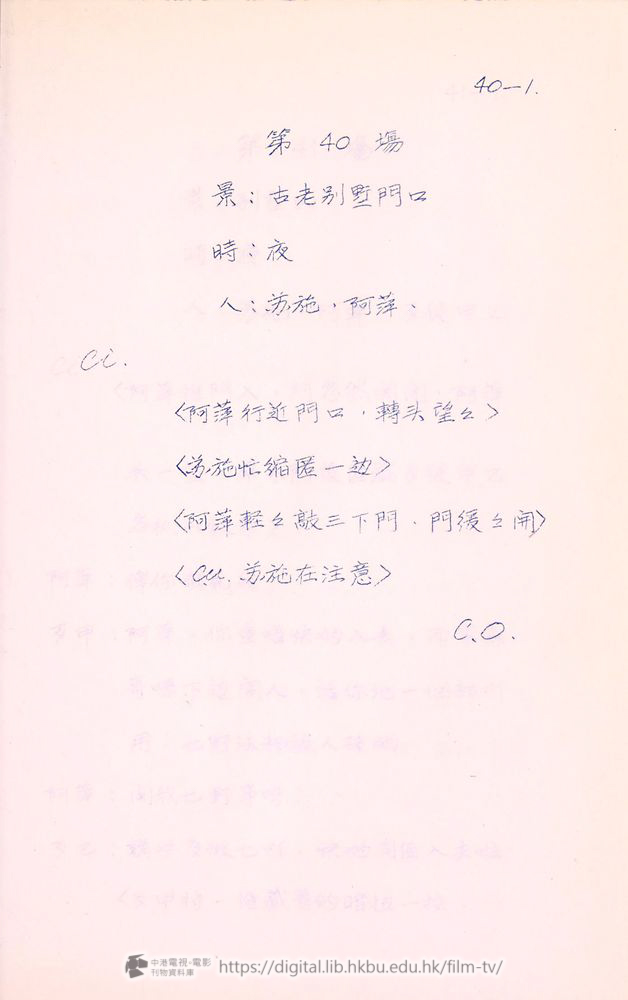 40-1.
第 40 場
景：古老別墅門口
時：夜
人：苏施，阿萍．
C.I.
〈阿萍行近門口，轉头望々〉
〈苏施忙缩匿一边〉
〈阿萍輕々敲三下門．門缓々開〉
〈CU. 苏施在注意〉
C.O.
中港電視·電影
刊物資料庫
https://digital.lib.hkbu.edu.hk/film-tv/